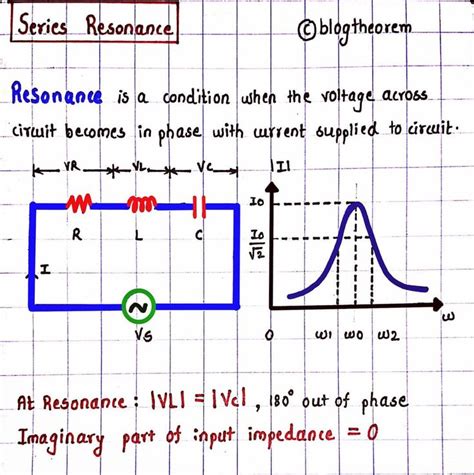 Series Resonance
© blogtheorem
Resonance is a condition when the voltage across
circuit becomes in phase with current supplied to circuit.
VR VL VC
R L C
I
VS
|I|
I0
I0/√2
0 ω1 ω0 ω2
ω
At Resonance : |VL| = |VC| , 180° out of phase
Imaginary part of input impedance = 0